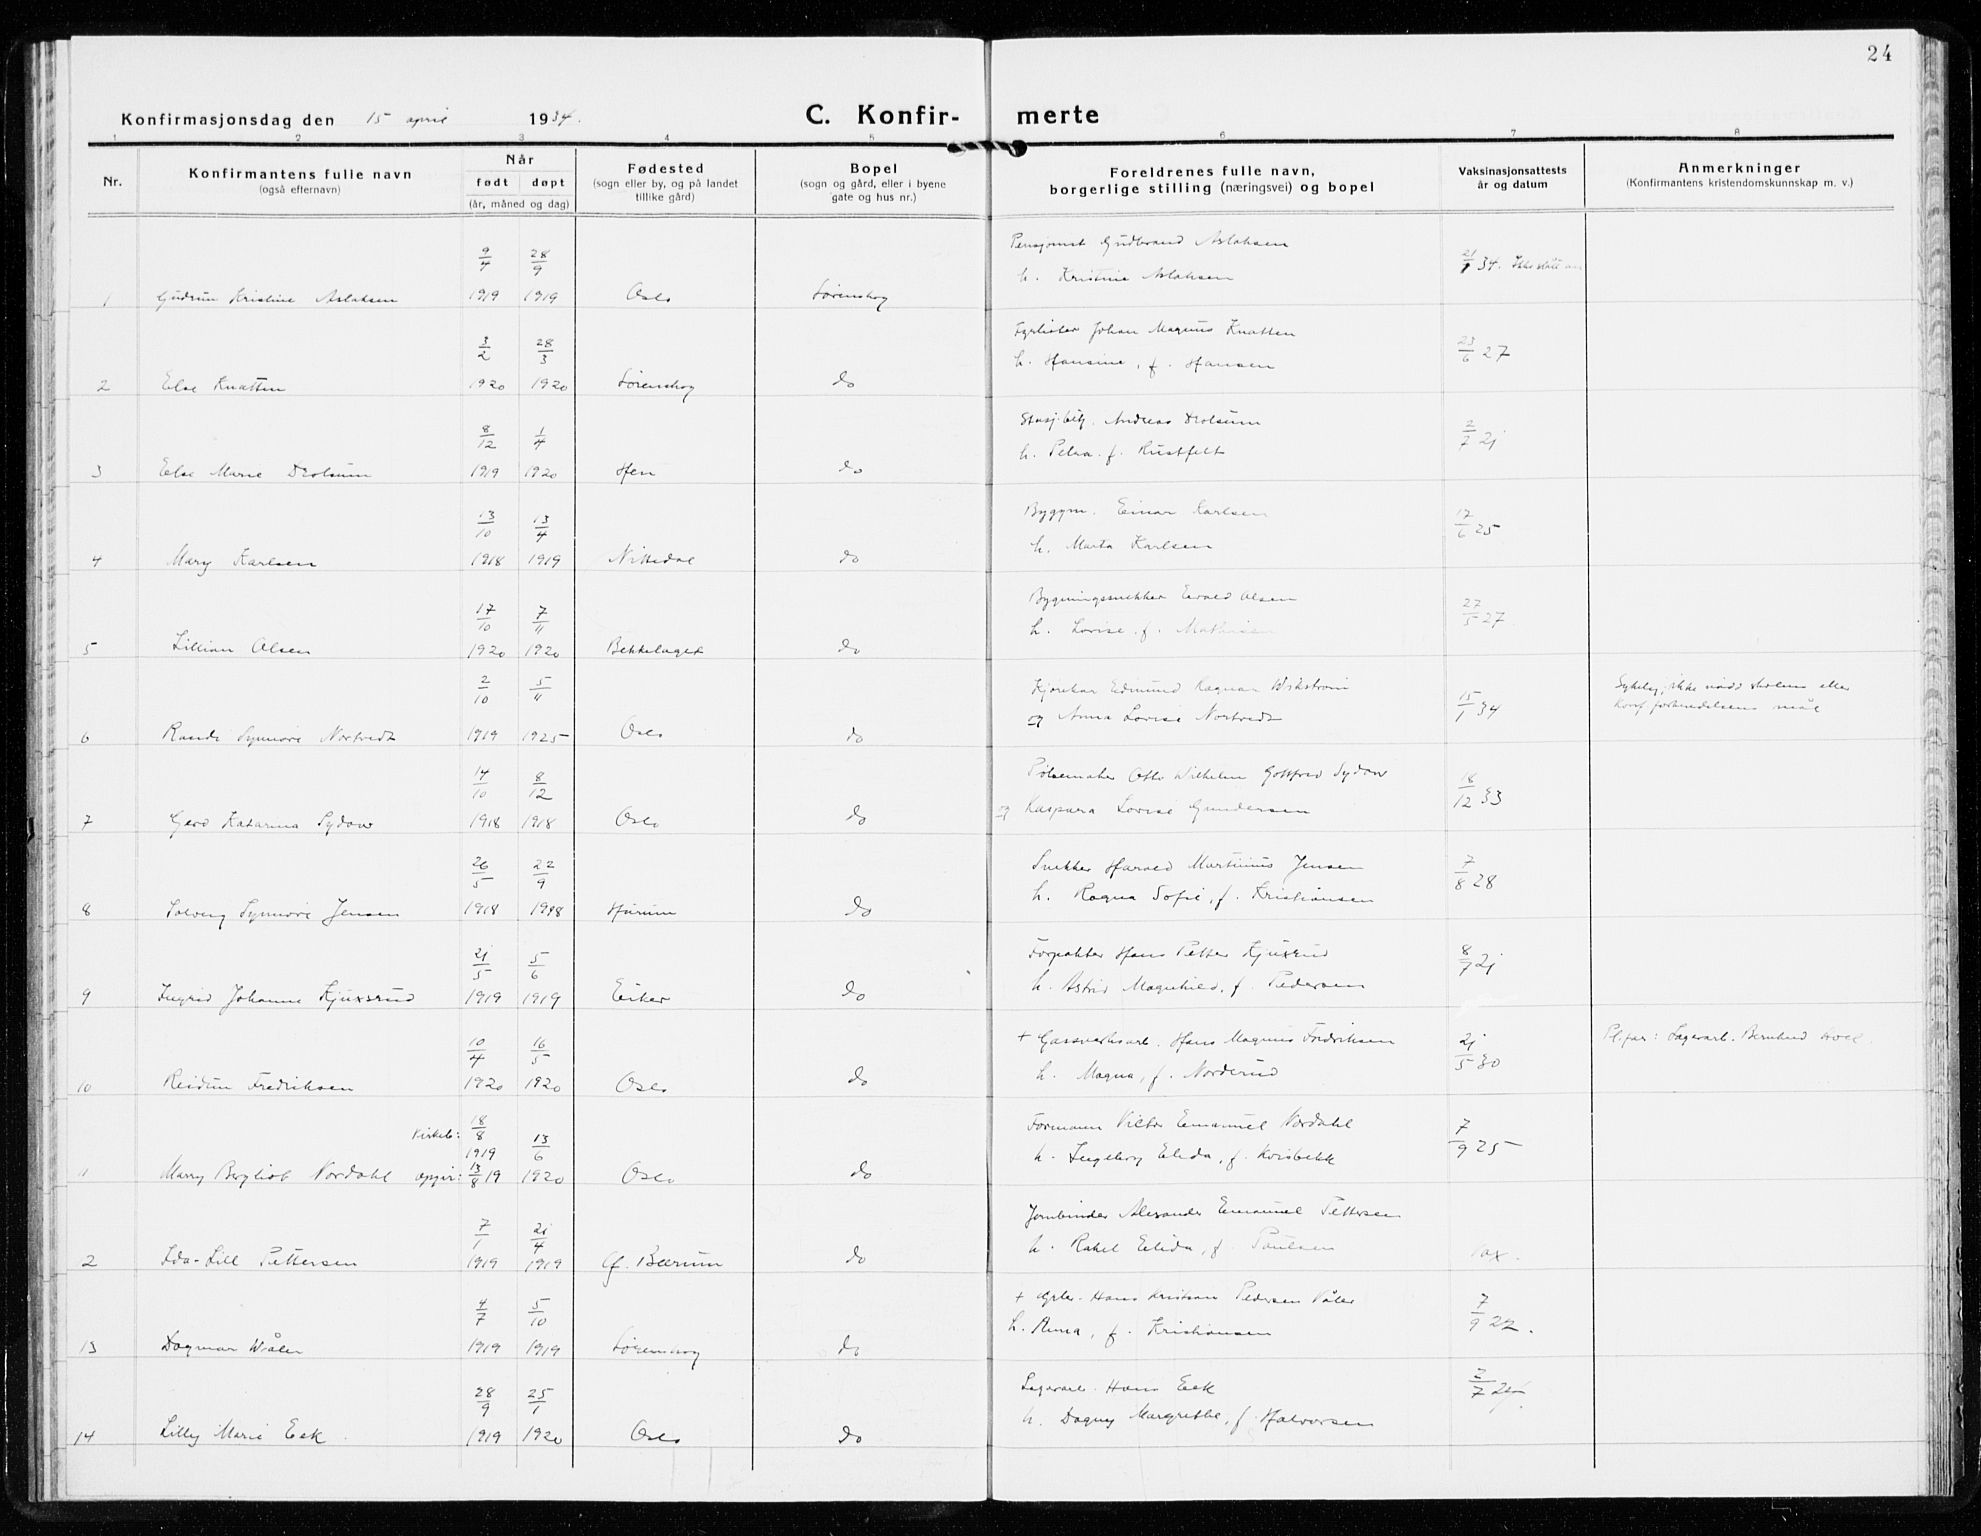 24
Konfirmasjonsdag den 15 april 1934.
C. Konfir- merte
1 2 3 4 5 6 7 8
Nr.
Konfirmantens fulle navn
(også efternavn)
Når
født døpt
(år, måned og dag)
Fødested
(sogn eller by, og på landet
tillike gård)
Bopel
(sogn og gård, eller i byene
gate og hus nr.)
Foreldrenes fulle navn,
borgerlige stilling (næringsvei) og bopel
Vaksinasjonsattests
år og datum
Anmerkninger
(Konfirmantens kristendomskunnskap m. v.)
9/4 28/9 Pensjonist Gudbrand Aslaksen
h. Kristine Aslaksen 34. Ikke slått an
1 Gudrun Kristine Aslaksen 1919 1919 Oslo Lørenskog
3/2 28/3 Johan Magnus Knatten
h. Hansine, f. Hansen 23/6 27
2 Else Knatten 1920 1920 Lørenskog do
8/12 1/4 Stasj.betj. Andreas Drolsum
h. Petra. f. Rustfelt 2/7 21
3 Else Marie Drolsum 1919 1920 Hen do
13/10 13/4 Byggm. Einar Karlsen
h. Marta Karlsen 17/6 25
4 Mary Karlsen 1918 1919 Nittedal do
17/10 7/11 Bygningssnekker Olsen
h. Lovise. f. Mathisen 27/5 27
5 Lillian Olsen 1920 1920 Bekkelaget do
2/10 5/11 Kjørekar Edmund Ragnar Wikstrøm
og Anna Lovise Nortvedt 15/1 34
Sykelig, ikke nådd skolens eller
konf.forberedelsens mål
6 Randi Synnøve Nortvedt 1919 1925 Oslo do
14/10 8/12 Pølsemaker Otto Wilhelm Gottfred Sydow
og Kaspara Lovise Gundersen 18/12 33
7 Gerd Katarina Sydow 1918 1918 Oslo do
26/5 22/9 Snekker Harald Martinius Jensen
h. Ragna Sofie, f. Kristiansen 7/8 28
8 Solveig Synnøve Jensen 1918 1918 Hurum do
21/5 5/6 Forpakter Hans Petter Kjuxrud
h. Astrid Magnhild, f. Pedersen 8/7 21
9 Ingrid Johanne Kjuxsrud 1919 1919 Eiker do
10/4 16/5 + Gassverksarb. Hans Magnus Fredriksen
h. Magna, f. Norderud 21/5 30
Pl.far: Lagerarb. Bernhard
10 Reidun Fredriksen 1920 1920 Oslo do
Kirkeb: 18/8 1919 13/6 Formann Viktor Emanuel Nordahl
h. Ingeborg Elida, f. Kvisbekk 7/9 25
11 Marry Bergliot Nordahl opgir: 13/8 19 1920 Oslo do
7/1 21/4 Jernbinder Alexander Emanuel Pettersen
h. Rakel Elida, f. Paulsen
2 Ida-Lill Pettersen 1919 1919 Ø. Bærum do
4/7 5/10 + Hans Kristian Pedersen Våler
h. Anna, f. Kristiansen 7/9 22.
13 Dagmar Wåler 1919 1919 Lørenskog do
28/9 25/1 Lagerarb. Hans Eek
h. Dagny Margrethe, f. Halvorsen 2/7
14 Lilly Marie Eek 1919 1920 Oslo do